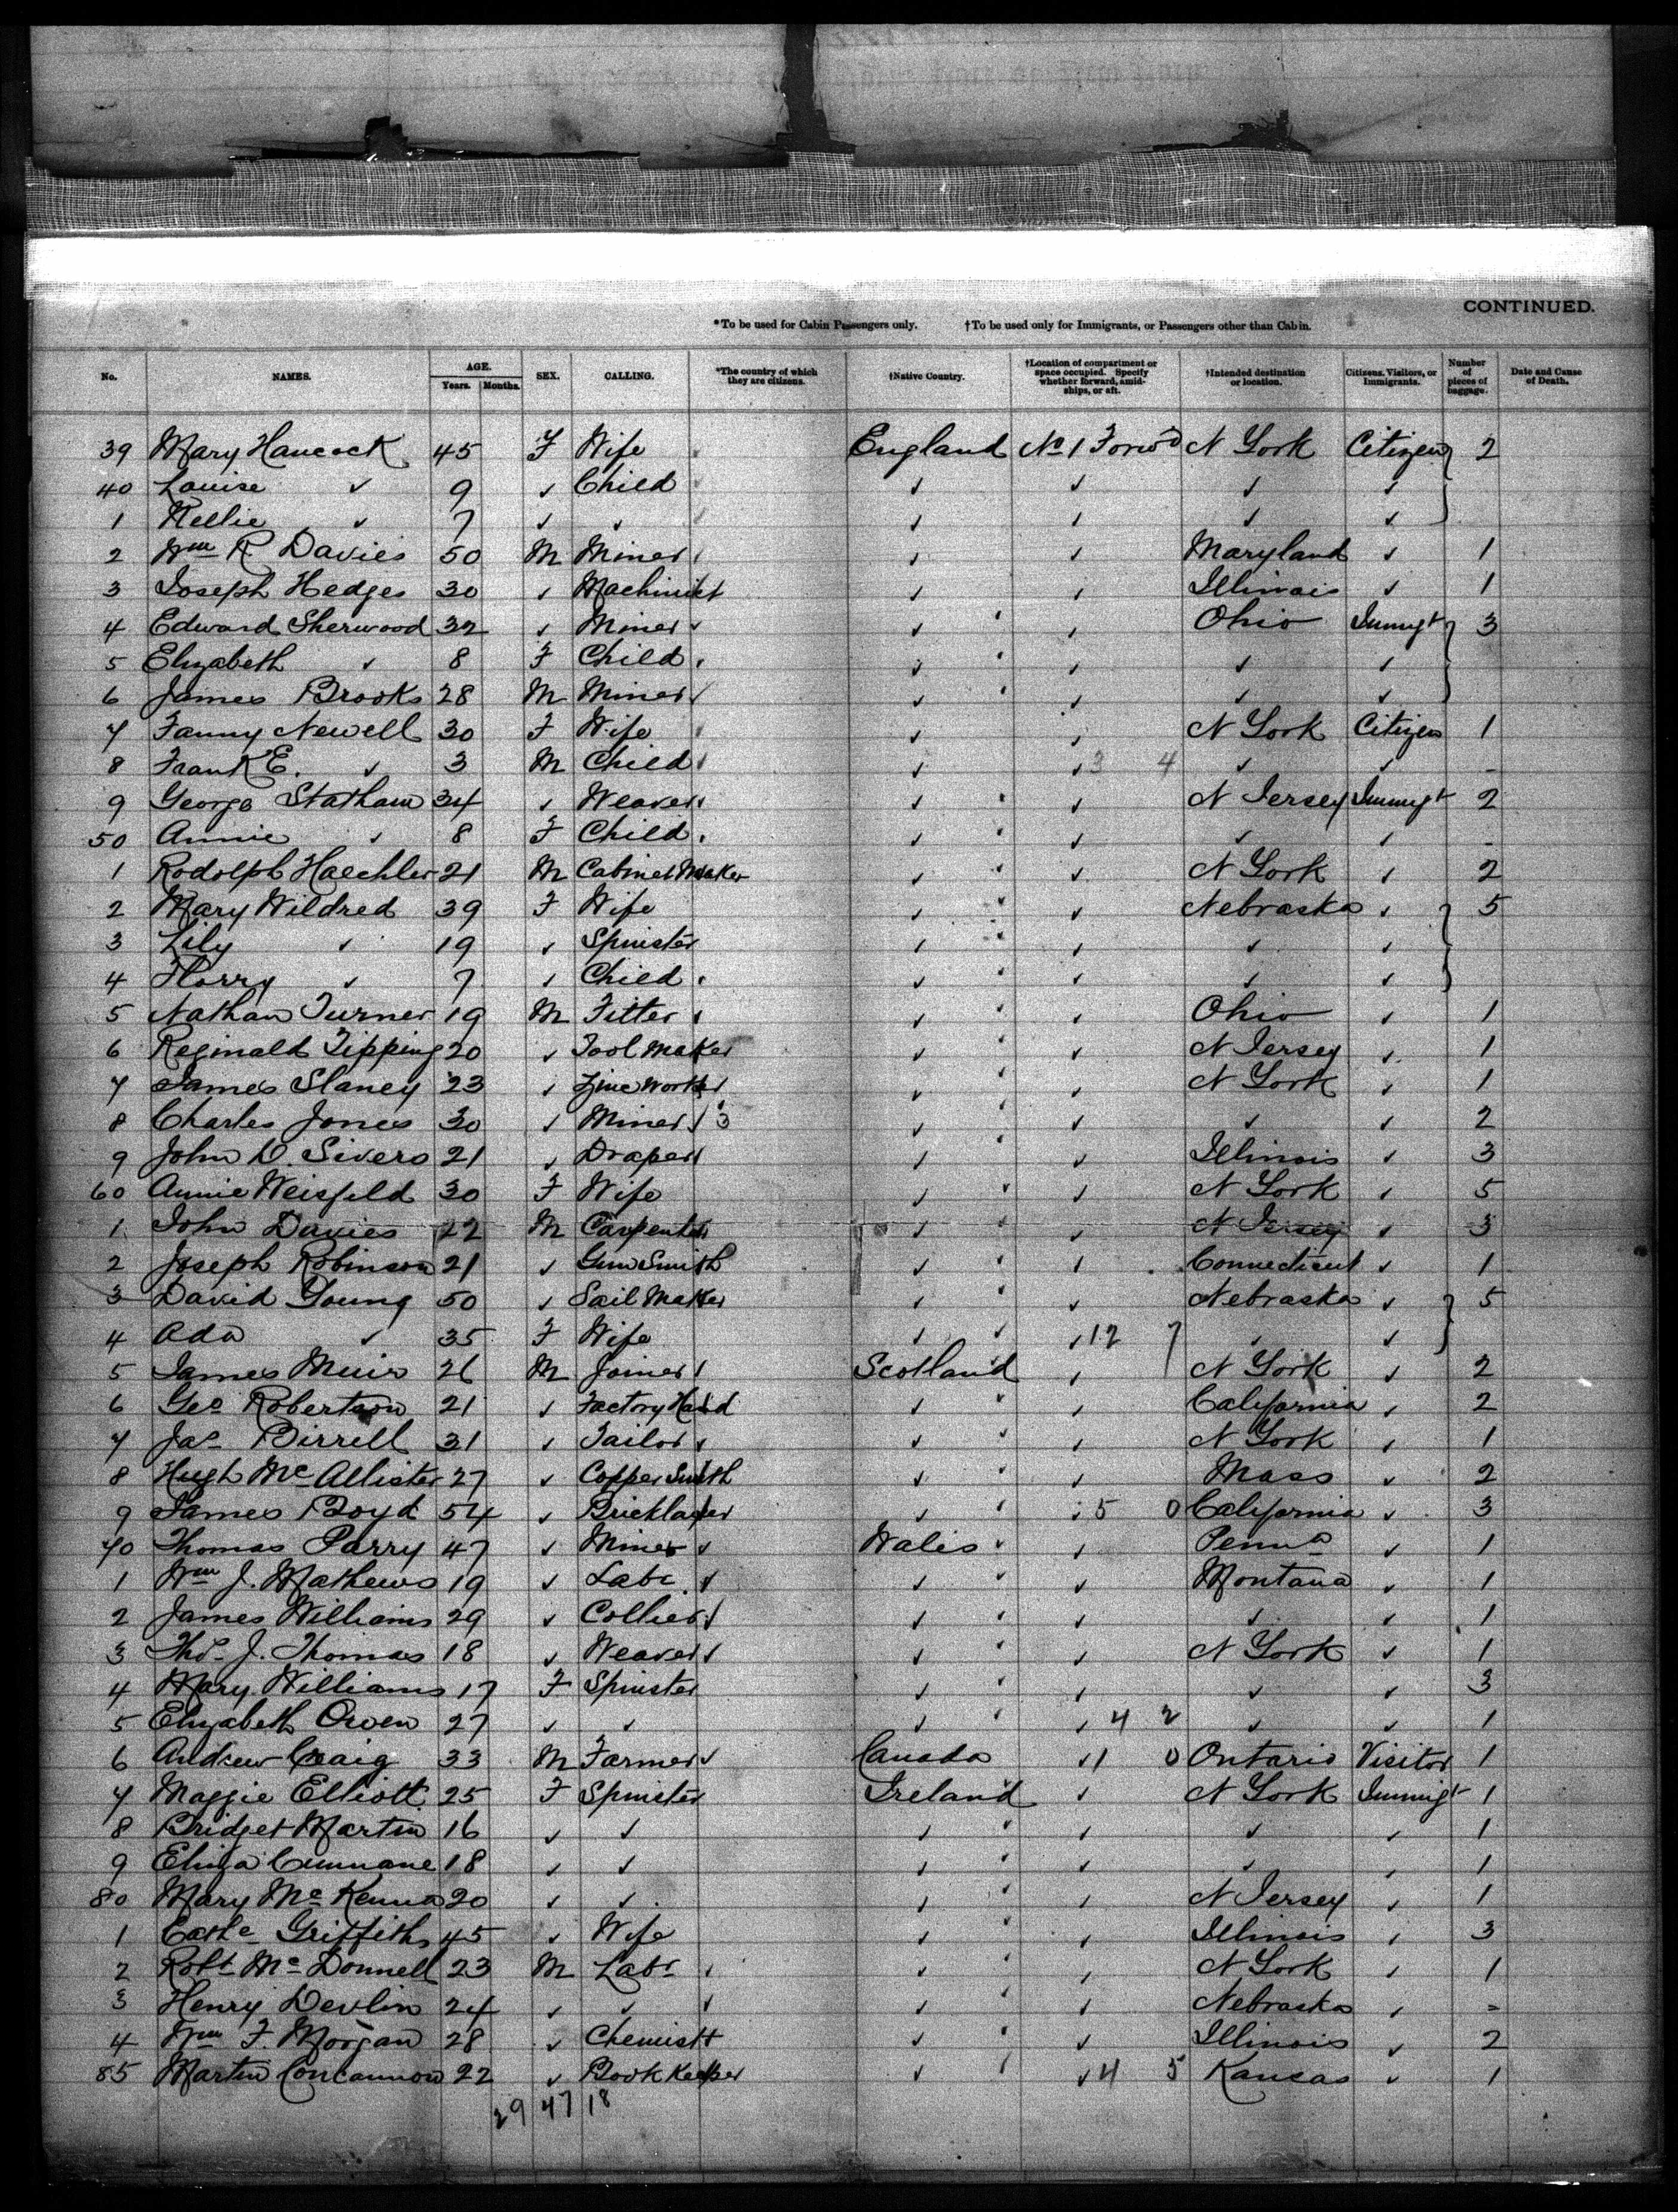 CONTINUED.
*To be used for Cabin Passengers only. †To be used only for Immigrants, or Passengers other than Cabin.
No. NAMES. AGE. Years. Months. SEX. CALLING. *The country of which they are citizens. †Native Country. †Location of compartment or space occupied. Specify whether forward, amidships, or aft. †Intended destination or location. Citizens, Visitors, or Immigrants. Number of pieces of baggage. Date and Cause of Death.
39 Mary Hancock 45 F Wife England No 1 Forwd N York Citizen 2
40 Louise ✓ 9 ✓ Child ✓ ✓ ✓ ✓
1 Nellie ✓ 7 ✓ ✓ ✓ ✓ ✓ ✓
2 Wm R Davies 50 M Miner ✓ ✓ Maryland ✓ 1
3 Joseph Hedges 30 ✓ Machinist ✓ ✓ Illinois ✓ 1
4 Edward Sherwood 32 ✓ Miner ✓ ✓ Ohio Immigt 3
5 Elizabeth ✓ 8 F Child ✓ ✓ ✓ ✓
6 James Brooks 28 M Miner ✓ ✓ ✓ ✓
7 Fanny Newell 30 F Wife ✓ ✓ N York Citizen 1
8 Frank E. ✓ 3 M Child ✓ ✓ 3 4 ✓ ✓ -
9 George Statham 34 ✓ Weaver ✓ ✓ N Jersey Immigt 2
50 Annie ✓ 8 F Child ✓ ✓ ✓ ✓ -
1 Rodolph Haechler 21 M Cabinet Maker ✓ ✓ N York ✓ 2
2 Mary Wildred 39 F Wife ✓ ✓ Nebraska ✓ 5
3 Lily ✓ 19 ✓ Spinster ✓ ✓ ✓ ✓
4 Florry ✓ 7 ✓ Child ✓ ✓ ✓ ✓
5 Nathan Turner 19 M Fitter ✓ ✓ Ohio ✓ 1
6 Reginald Tipping 20 ✓ Tool Maker ✓ ✓ N Jersey ✓ 1
7 James Slaney 23 ✓ Zinc Worker ✓ ✓ N York ✓ 1
8 Charles Jones 30 ✓ Miner 3 ✓ ✓ ✓ ✓ 2
9 John D. Sivers 21 ✓ Draper ✓ ✓ Illinois ✓ 3
60 Annie Weisfeld 30 F Wife ✓ ✓ N York ✓ 5
1 John Davies 22 M Carpenter ✓ ✓ N Jersey ✓ 3
2 Joseph Robinson 21 ✓ Gun Smith ✓ ✓ Connecticut ✓ 1
3 David Young 50 ✓ Sail Maker ✓ ✓ Nebraska ✓ 5
4 Ada ✓ 35 F Wife ✓ ✓ 12 7 ✓ ✓
5 James Muir 26 M Joiner Scotland ✓ N York ✓ 2
6 Geo Robertson 21 ✓ Factory Hand ✓ ✓ California ✓ 2
7 Jas Birrell 31 ✓ Tailor ✓ ✓ N York ✓ 1
8 Hugh McAllister 27 ✓ Copper Smith ✓ ✓ Mass ✓ 2
9 James Boyd 54 ✓ Bricklayer ✓ ✓ 5 0 California ✓ 3
70 Thomas Parry 47 ✓ Miner Wales ✓ Penna ✓ 1
1 Wm J. Mathews 19 ✓ Labr ✓ ✓ Montana ✓ 1
2 James Williams 29 ✓ Collier ✓ ✓ ✓ ✓ 1
3 Thos J. Thomas 18 ✓ Weaver ✓ ✓ N York ✓ 1
4 Mary Williams 17 F Spinster ✓ ✓ ✓ ✓ 3
5 Elizabeth Owen 27 ✓ ✓ ✓ ✓ 4 2 ✓ ✓ 1
6 Andrew Craig 33 M Farmer Canada ✓ 1 0 Ontario Visitor 1
7 Maggie Elliott 25 F Spinster Ireland ✓ N York Immigt 1
8 Bridget Martin 16 ✓ ✓ ✓ ✓ ✓ ✓ 1
9 Eliza Cunnane 18 ✓ ✓ ✓ ✓ ✓ ✓ 1
80 Mary McKenna 20 ✓ ✓ ✓ ✓ N Jersey ✓ 1
1 Cathe Griffiths 45 ✓ Wife ✓ ✓ Illinois ✓ 3
2 Robt McDonnell 23 M Labr ✓ ✓ N York ✓ 1
3 Henry Devlin 24 ✓ ✓ ✓ ✓ Nebraska ✓ -
4 Wm F. Morgan 28 ✓ Chemist ✓ ✓ Illinois ✓ 2
85 Martin Concannon 22 ✓ Book Keeper ✓ ✓ 4 5 Kansas ✓ 1
29 47 18